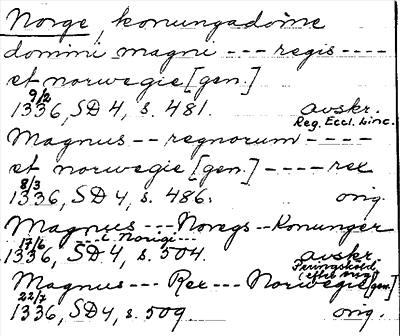 Norge, konungadöme
domini magni --- regis ----
et norwegie [gen.]
9/2
1336, SD 4, s. 481. avskr.
Reg. Eccl. Linc.
Magnus -- regnorum -----
et norwegie [gen.] ---- rex
8/3
1336, SD 4, s. 486. orig.
Magnus --- Noregs - Konunger
17/6 --- i Norigi ---
1336, SD 4, s. 504. avskr.
Peringskiöld
(efter orig.)
Magnus --- Rex --- Norwegie [gen.]
22/7
1336, SD 4, s. 509. orig.